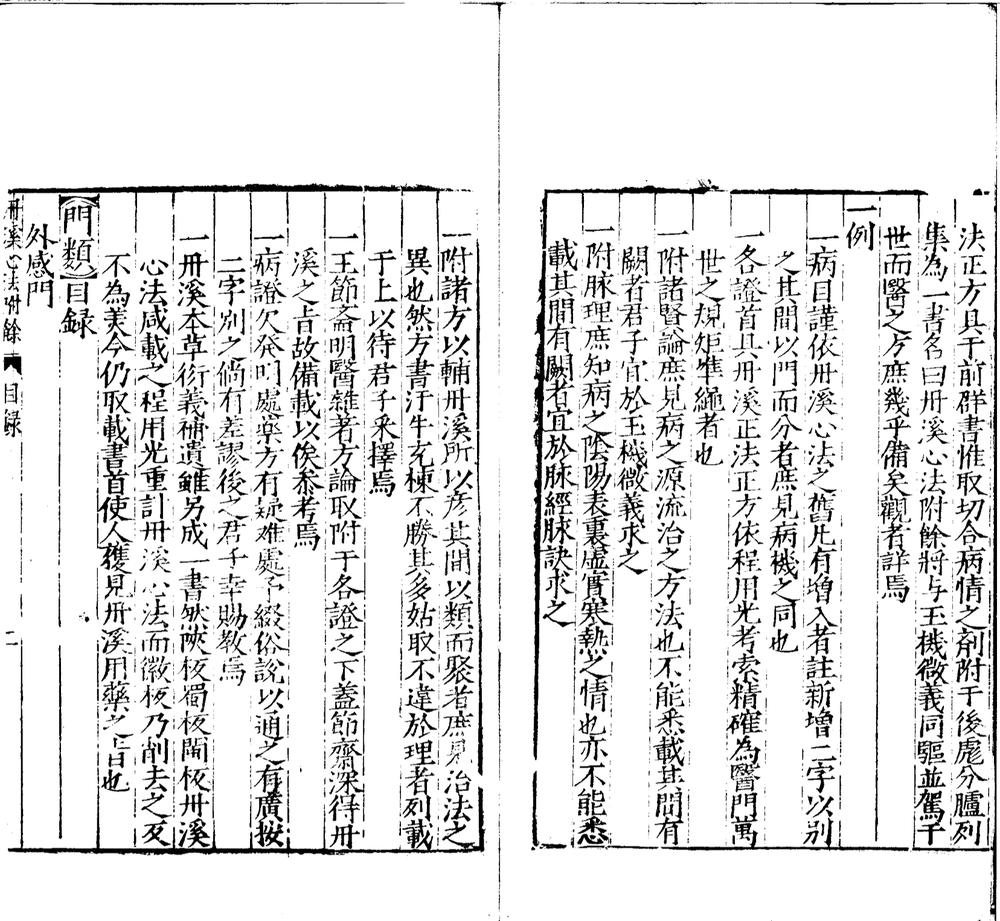 法正方具于前群書惟取切合病情之劑附于後麁分臚列
集為一書名曰丹溪心法附餘將与玉機微義同驅並駕于
世而醫之方庶幾乎備矣觀者詳焉
一例
一病目謹依丹溪心法之舊凡有增入者註新增二字以别
之其間以門而分者庶見病機之同也
一各證首具丹溪正法正方依程用光考索精確為醫門萬
世之規矩準繩者也
一附諸賢論庶見病之源流治之方法也不能悉載其間有
闕者君子宜於玉機微義求之
一附脉理庶知病之陰陽表裏虛實寒熱之情也亦不能悉
載其間有闕者宜於脉經脉訣求之
一附諸方以輔丹溪所以彦其間以類而聚者庶見治法之
異也然方書汗牛充棟不勝其多姑取不違於理者列載
于上以待君子采擇焉
一王節斎明醫雜著方論取附于各證之下蓋節齋深得丹
溪之旨故備載以俟叅考焉
一病證欠発明處藥方有疑难處予綴俗說以通之有廣按
二字别之倘有差謬後之君子幸賜教焉
一丹溪本草衍義補遺雖另成一書然陜板蜀板閩板丹溪
心法咸載之程用光重訂丹溪心法而徽板乃削去之亥
不為美今仍取載書首使人獲見丹溪用藥之旨也
門類目録
外感門
丹溪心法附餘 目录 二